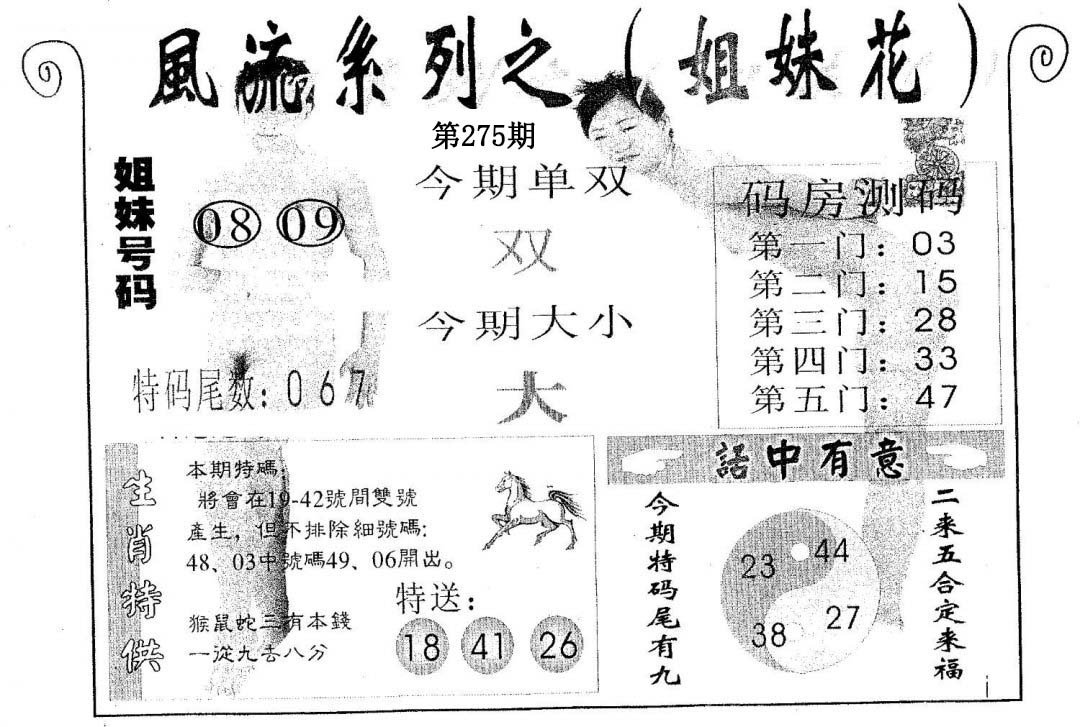 風流系列之（姐妹花）
第275期
姐妹号码
08 09
特码尾数：0 6 7
今期单双
双
今期大小
大
码房测码
第一门：03
第二门：15
第三门：28
第四门：33
第五门：47
生肖特供
本期特碼：
將會在19-42號間雙號
產生，但不排除細號碼:
48、03中號碼49、06開出。
猴鼠蛇三有本錢
一從九去八分
特送：
18 41 26
話中有意
今期特码尾有九
23 44
38 27
二来五合定来福